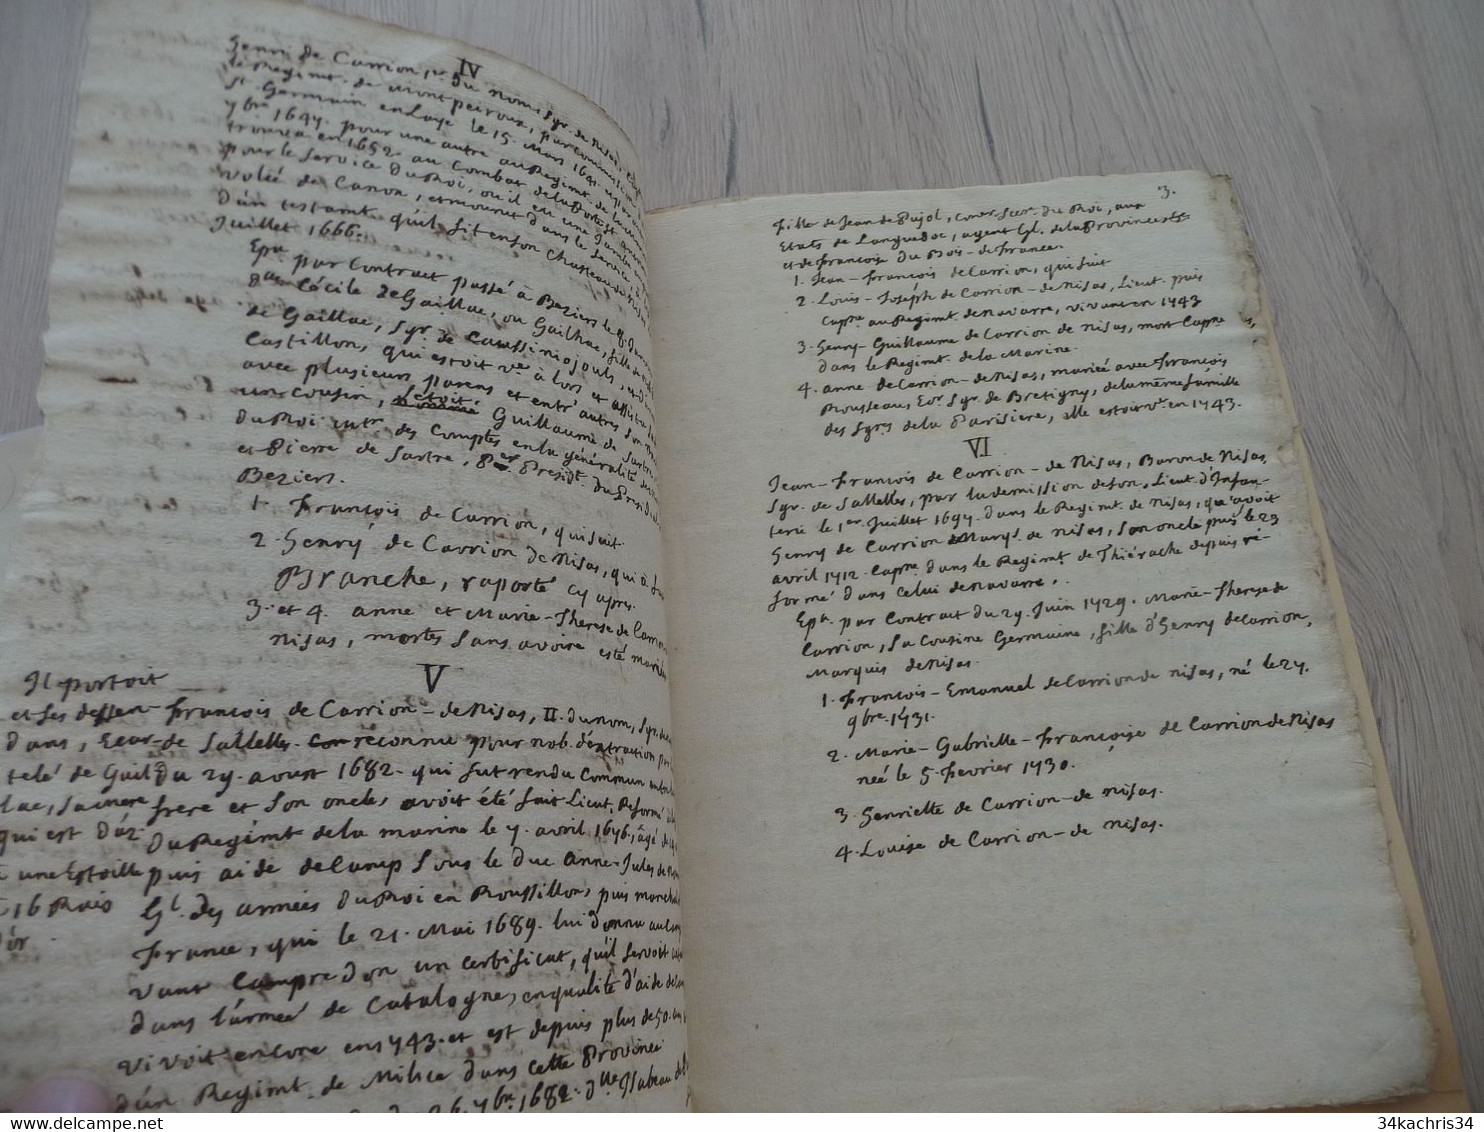 IV
Henri de Carrion 1er du nom, Sgr. de Nisas,
le Regimt. de Montpeiroux, par commission
St. Germain en Laye le 15. Mars 1641. et par
7bre 1647. pour une autre au Regimt. de
trouva en 1652. au Combat de la Porte St.
pour le service du Roi, ou il eu une Jambe
volée de Canon, et mourut dans le service
d'un testamt. qu'il fit en son Chasteau de
Juillet 1666.
Epa. par Contract passé à Beziers le
dlle Cécile de Gaillac, ou Gailhac, fille de
de Gaillac, Sgr. de Caussiniojouls, et
Castillon, qui estoit ve. à lors et assista
avec plusieurs parens et entr'autres son
un cousin, etoit Guillaume de Sartre
du Roi intr. des Comptes en la généralité de
et Pierre de Sartre, Per. Presidt. du Presidial
Beziers.
1. François de Carrion, qui suit.
2. Henry de Carrion de Nisas, qui à fait
Branche, raporté cy apres.
3. et 4. Anne et Marie-Therese de Carrion
Nisas, mortes sans avoire esté mariées
V
Il portoit
et ses dessen-
dans, Ecar-
telé de Gail
lac, sa mere
qui est d'az
une Estoille
16 Rais
d'or
François de Carrion-de Nisas, II. du nom, Sgr. de
de Sallelles. reconnu pour nob. d'extraction par
du 29. aoust 1682. qui fut rendu commun entre
frere et son oncle, avoit été fait Lieut. Reformé
du Regimt de la marine le 7. avril 1676, âgé de
puis aide de Camp sous le Duc Anne-Jules de
Gl. des armées du Roi en Roussillon, puis marechal
France, qui le 21. Mai 1689. lui donna au
vant un certificat, qu'il servoit
dans l'armée de Catalogne, en qualité d'aide de
vivoit encore en 1743. et est depuis plus de 50. ans
d'un Regimt. de Milice dans cette Province
7bre 1682. dlle Isabeau de
3.
fille de Jean de Pujol, coner. Secr. du Roi, aux
Etats de Languedoc, agent Gl. de la Province
et de Françoise du Bois-de France.
1. Jean-François de Carrion, qui suit
2. Louis-Joséph de Carrion-de Nisas, Lieut. puis
Capne au Regimt. de Navarre, vivant en 1743
3. Henry-Guillaume de Carrion de Nisas, mort Capne
dans le Regimt. de la Marine.
4. anne de Carrion-de Nisas, mariée avec François
Rousseau, Ecr. Sgr. de Bretigny, de la même famille
des Sgrs de la Parisiere, elle estoit ve. en 1743.
VI
Jean-François de Carrion-de Nisas, Baron de Nisas,
Sgr. de Sallelles, par la demission de son, Lieut. d'Infan-
terie le 1er. Juillet 1697. dans le Regimt. de Nisas, qu'avoit
Henry de Carrion Marqs. de Nisas, son oncle puis le 23
avril 1712. Capne. dans le Regimt. de Thiérache depuis ré-
formé dans celui de Navarre.
Epa. par Contrat du 29. Juin 1729. Marie-Therese de
Carrion, sa Cousine Germaine, fille d'Henry de Carrion,
Marquis de Nisas.
1. François-Emanuel de Carrion de Nisas, né le 27.
9bre. 1731.
2. Marie-Gabrielle-Françoise de Carrion de Nisas
neé le 5. Fevrier 1730.
3. Henriette de Carrion-de Nisas.
4. Louise de Carrion-de Nisas.
34kachris34
34kachris34